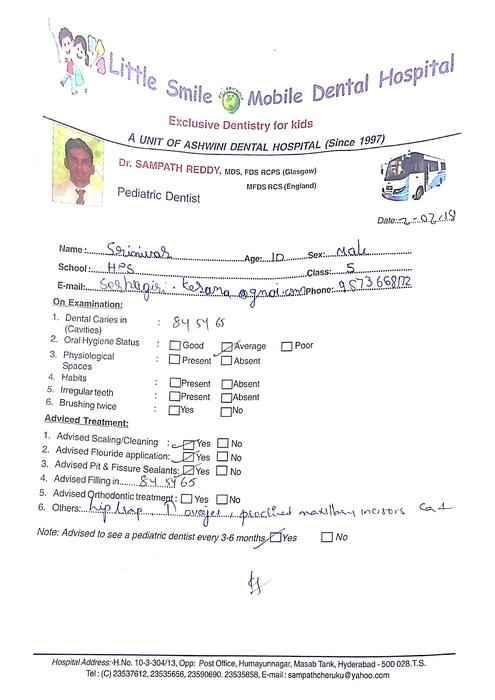 Little Smile Mobile Dental Hospital
Exclusive Dentistry for kids
A UNIT OF ASHWINI DENTAL HOSPITAL (Since 1997)
Dr. SAMPATH REDDY, MDS, FDS RCPS (Glasgow)
MFDS RCS (England)
Pediatric Dentist
Date: 2-07-18
Name: Srinivas Age: 10 Sex: Male
School: HPS Class: 5
E-mail: Phone: 9573668172
On Examination:
1. Dental Caries in : 84 54 65
(Cavities)
2. Oral Hygiene Status : Good Average Poor
3. Physiological : Present Absent
Spaces
4. Habits : Present Absent
5. Irregular teeth : Present Absent
6. Brushing twice : Yes No
Adviced Treatment:
1. Advised Scaling/Cleaning : Yes No
2. Advised Flouride application: Yes No
3. Advised Pit & Fissure Sealants: Yes No
4. Advised Filling in 84 54 65
5. Advised Orthodontic treatment: Yes No
6. Others: lip trap ↑ overjet, proclined maxillary incisors
Note: Advised to see a pediatric dentist every 3-6 months Yes No
Hospital Address: H.No. 10-3-304/13, Opp: Post Office, Humayunnagar, Masab Tank, Hyderabad - 500 028.T.S.
Tel : (C) 23537612, 23535656, 23590690. 23535858, E-mail : sampathcheruku@yahoo.com